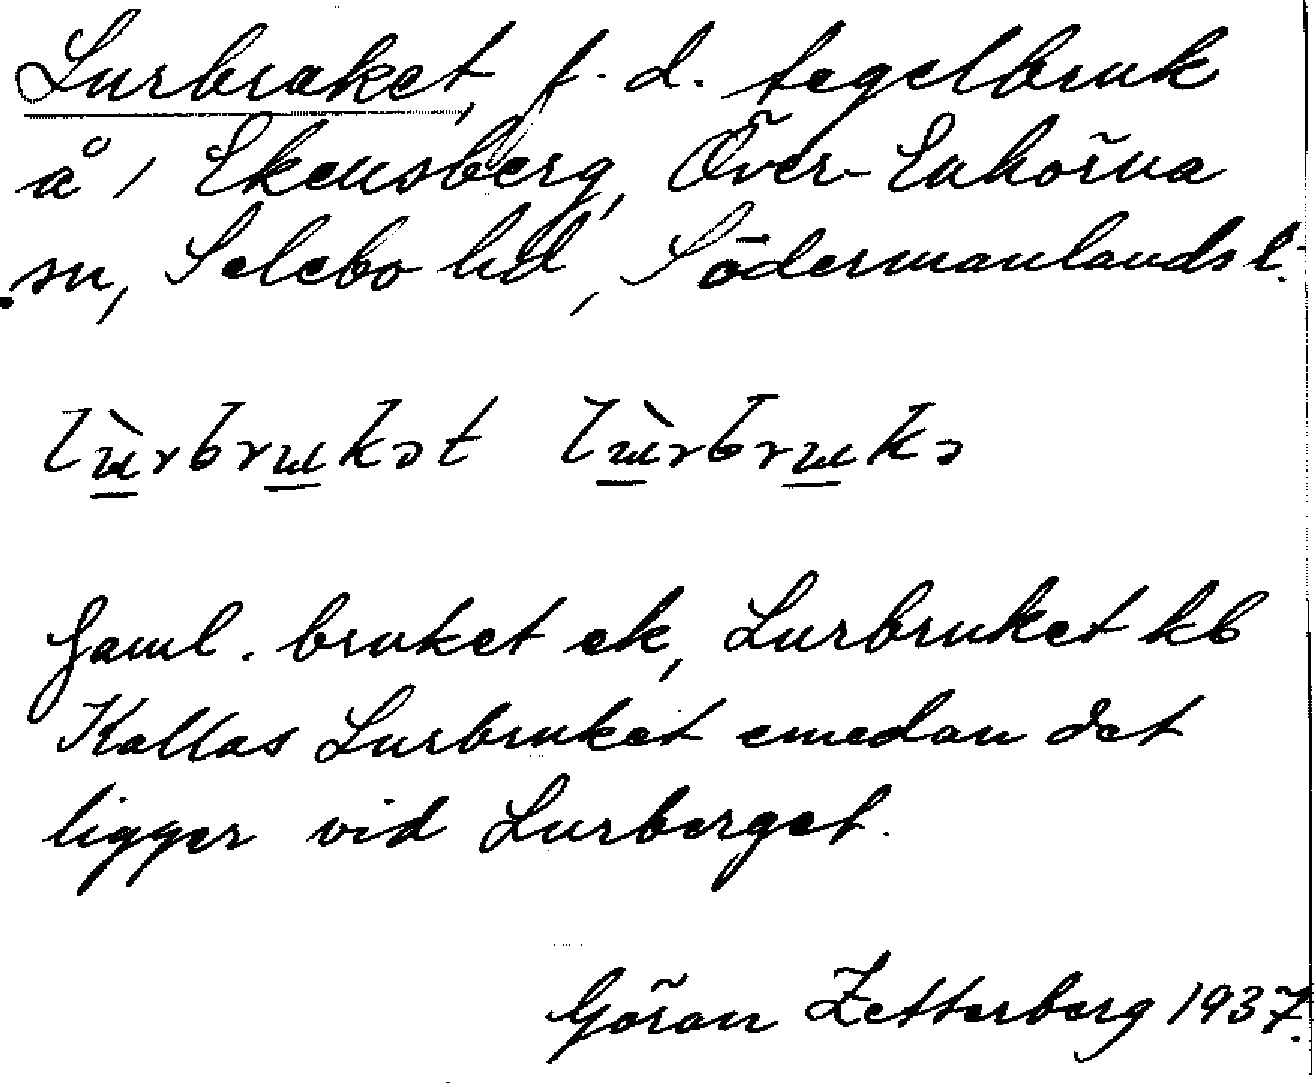 Lurbruket, f. d. tegelbruk
å 1 Ekensberg, Över-Enhörna
sn, Selebo hd, Södermanlands l.
lɯ̀rbrɯkət lɯ̀rbrɯkə
Gaml. bruket ek, Lurbruket kb
Kallas Lurbruket emedan det
ligger vid Lurberget.
Göran Zetterberg 1937.